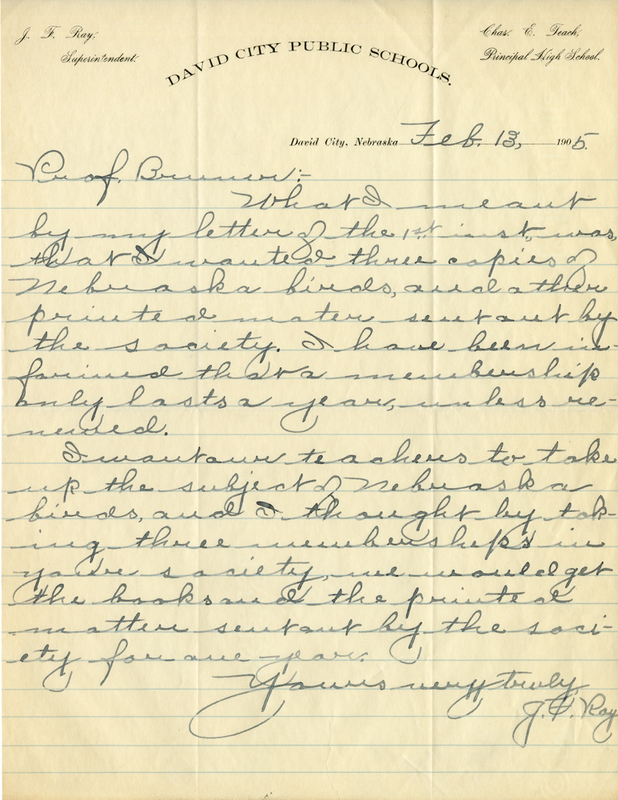 J. F. Ray,
Superintendent.
DAVID CITY PUBLIC SCHOOLS.
Chas. E. Teach,
Principal High School.
David City, Nebraska Feb. 13, 1905.
Prof. Bruner:-
What I meant
by my letter of the 1st inst. was,
that I wanted three copies of
Nebraska birds, and other
printed mater sent out by
the society. I have been in-
formed that a membership
only lasts a year, unless re-
newed.
I want our teachers to take
up the subject of Nebraska
birds, and I thought by tak-
ing three memberships in
your society, we would get
the books and the printed
matter sent out by the soci-
ety for one year.
Yours very truly,
J. F. Ray